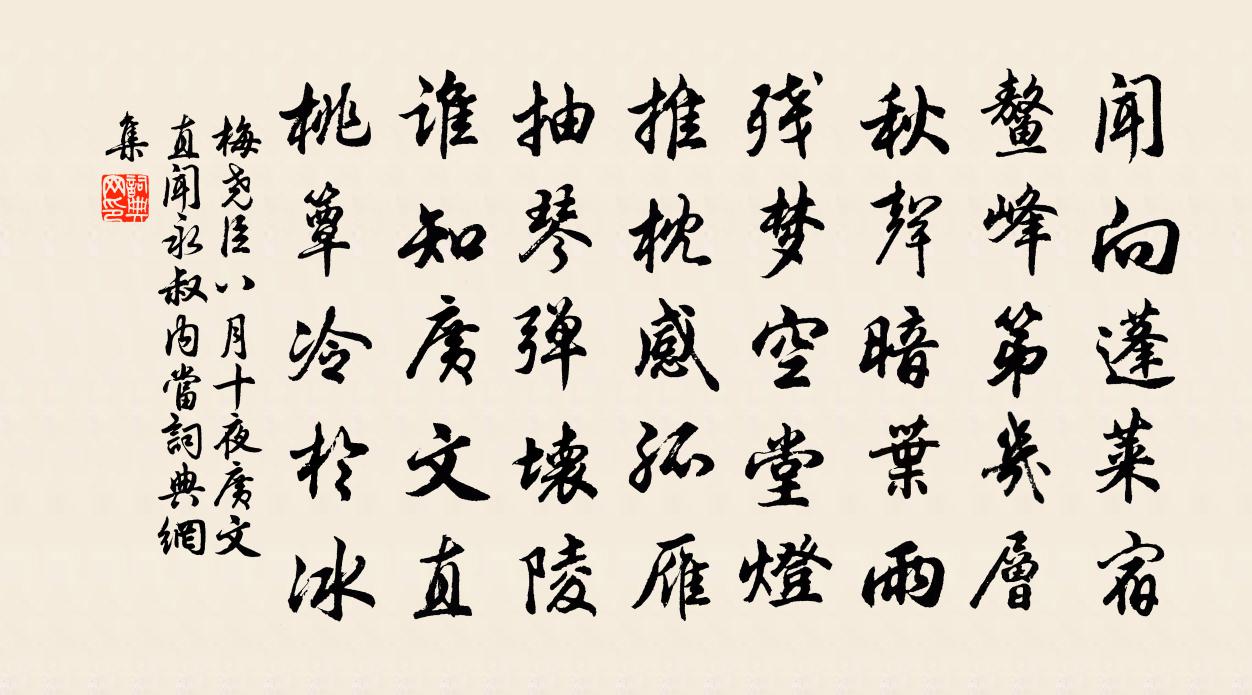 闻向蓬莱宿
鳌峰第几层
秋声暗叶雨
残梦空堂灯
推枕感孤雁
抽琴弹坏陵
谁知广文直
桃簟冷于冰
梅尧臣八月十夜广文
直闻永叔内当词典网
集
词典网印